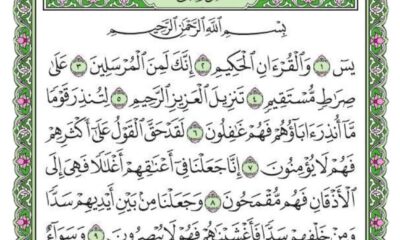 بِسْمِ اللَّهِ الرَّحْمَٰنِ الرَّحِيمِ
يسٓ ١ وَالْقُرْءَانِ الْحَكِيمِ ٢ إِنَّكَ لَمِنَ الْمُرْسَلِينَ ٣ عَلَىٰ
صِرَٰطٍ مُّسْتَقِيمٍ ٤ تَنزِيلَ الْعَزِيزِ الرَّحِيمِ ٥ لِتُنذِرَ قَوْمًا
مَّآ أُنذِرَ ءَابَآؤُهُمْ فَهُمْ غَٰفِلُونَ ٦ لَقَدْ حَقَّ الْقَوْلُ عَلَىٰٓ أَكْثَرِهِمْ
فَهُمْ لَا يُؤْمِنُونَ ٧ إِنَّا جَعَلْنَا فِىٓ أَعْنَٰقِهِمْ أَغْلَٰلًا فَهِىَ إِلَى
الْأَذْقَانِ فَهُم مُّقْمَحُونَ ٨ وَجَعَلْنَا مِنۢ بَيْنِ أَيْدِيهِمْ سَدًّا
وَمِنْ خَلْفِهِمْ سَدًّا فَأَغْشَيْنَٰهُمْ فَهُمْ لَا يُبْصِرُونَ ٩ وَسَوَآءٌ